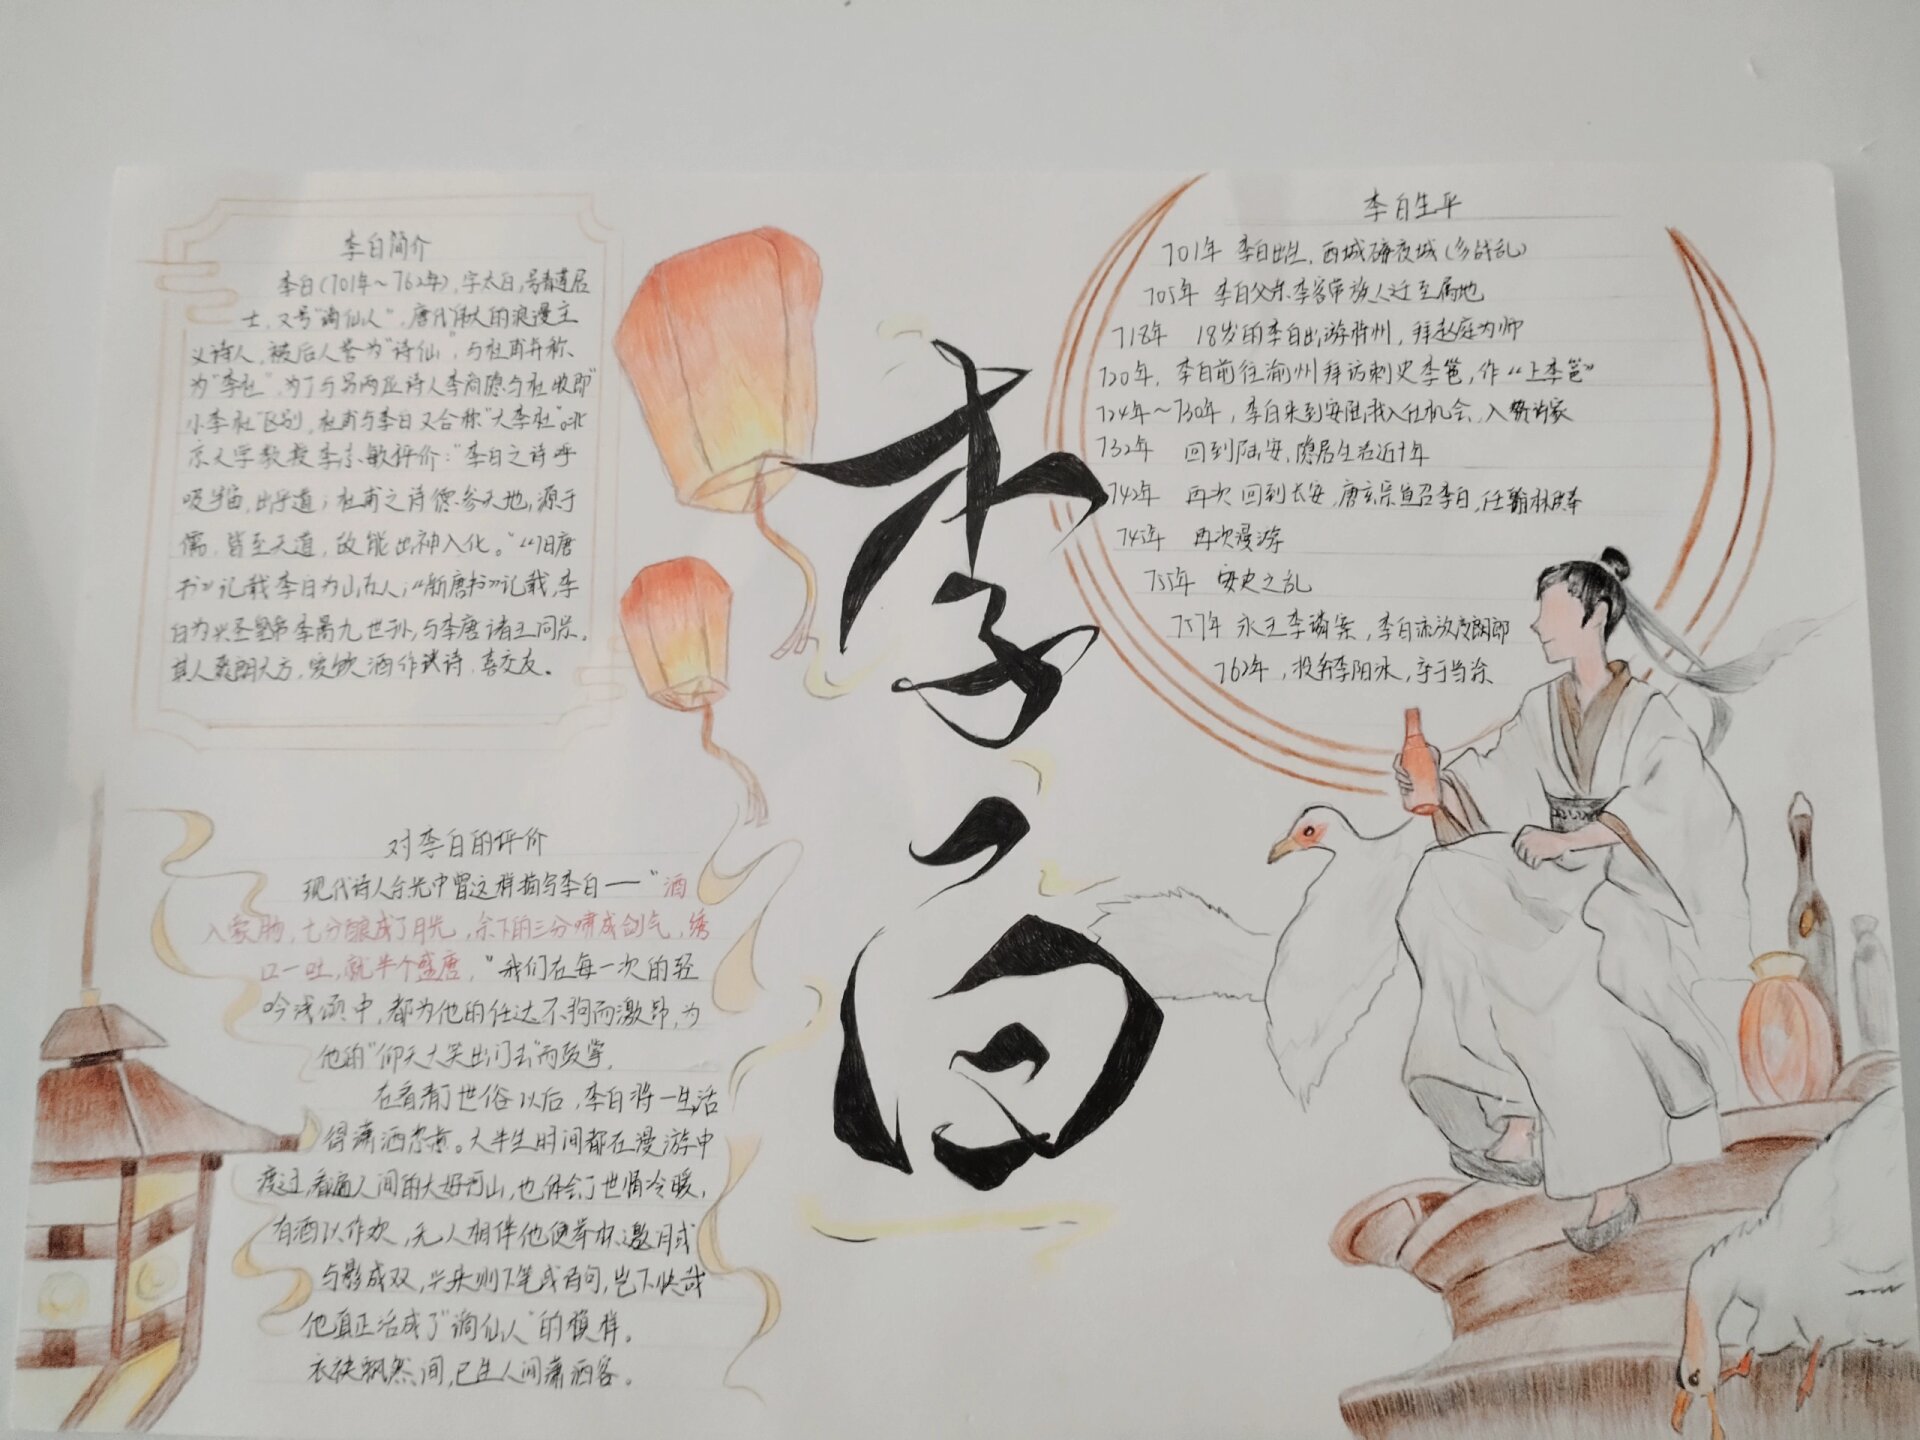 李白简介
李白(701年~762年),字太白,号青莲居
士,又号"谪仙人",唐代伟大的浪漫主
义诗人,被后人誉为"诗仙",与杜甫并称
为"李杜",为了与另两位诗人李商隐与杜牧即"
小李杜"区别,杜甫与李白又合称"大李杜"。北
京大学教授李志敏评价:"李白之诗呼
吸宇宙,出乎道;杜甫之诗德参天地,源于
儒,皆至天道,故能出神入化。"《旧唐
书》记载李白为山东人;《新唐书》记载,李
白为兴圣皇帝李暠九世孙,与李唐诸王同宗。
其人爽朗大方,爱饮酒作诗,喜交友。
李白
李白生平
701年 李白出生,西域碎夜城(多战乱)
705年 李白父亲李客带族人迁至属地
718年 18岁的李白出游,拜赵庭为师
720年,李白前往渝州拜访刺史李邕,作《上李邕》
724年~730年,李白来到安陆,找入仕机会,入赘许家
732年 回到陆安,隐居生活近十年
742年 再次回到长安,唐玄宗宣召李白,任翰林
745年 再次漫游
755年 安史之乱
757年 永王李璘案,李白流放夜郎
762年,投奔李阳冰,卒于当涂
对李白的评价
现代诗人余光中曾这样描写李白——"酒
入豪肠,七分酿成了月光,余下的三分啸成剑气,绣
口一吐,就半个盛唐,"我们在每一次的轻
吟浅颂中,都为他的任达不拘而激昂,为
他的"仰天大笑出门去"而鼓掌。
在看清了世俗以后,李白将一生活
得潇洒恣意。大半生时间都在漫游中
度过,看遍人间的大好河山,也体会了世情冷暖,
有酒以作欢,无人相伴他便举杯邀月或
与影成双,兴来则下笔成百句,岂不快哉
他真正活成了"谪仙人"的模样。
衣袂飘然间,已生人间潇洒客。